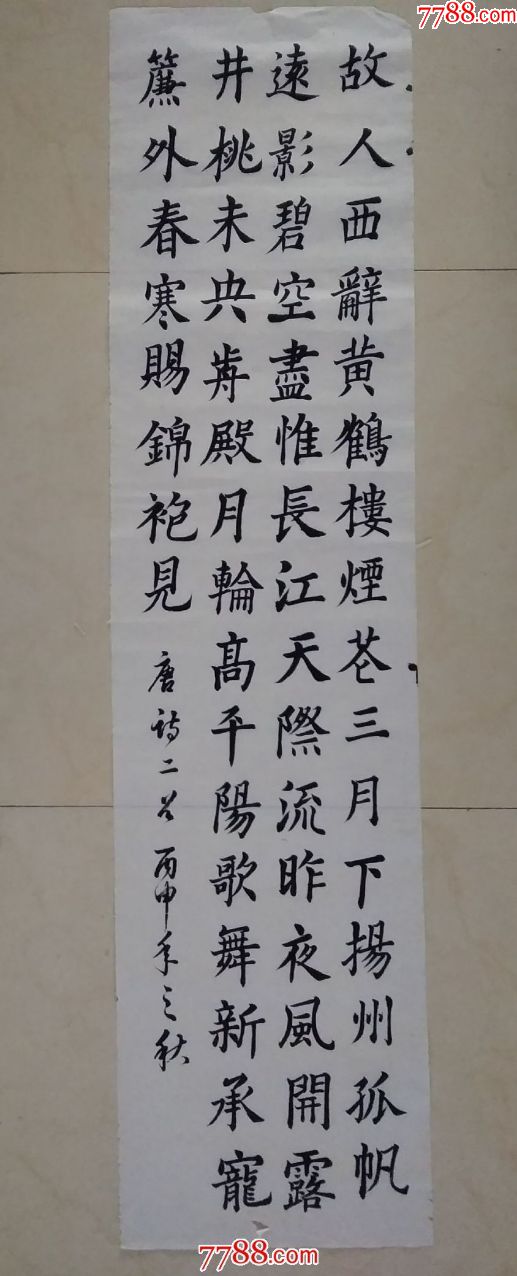 7788.com
故人西辭黄鶴樓煙花三月下揚州孤帆
遠影碧空盡惟長江天際流昨夜風開露
井桃未央前殿月輪高平陽歌舞新承寵
簾外春寒賜錦袍見
唐詩二首 丙申年之秋
7788.com